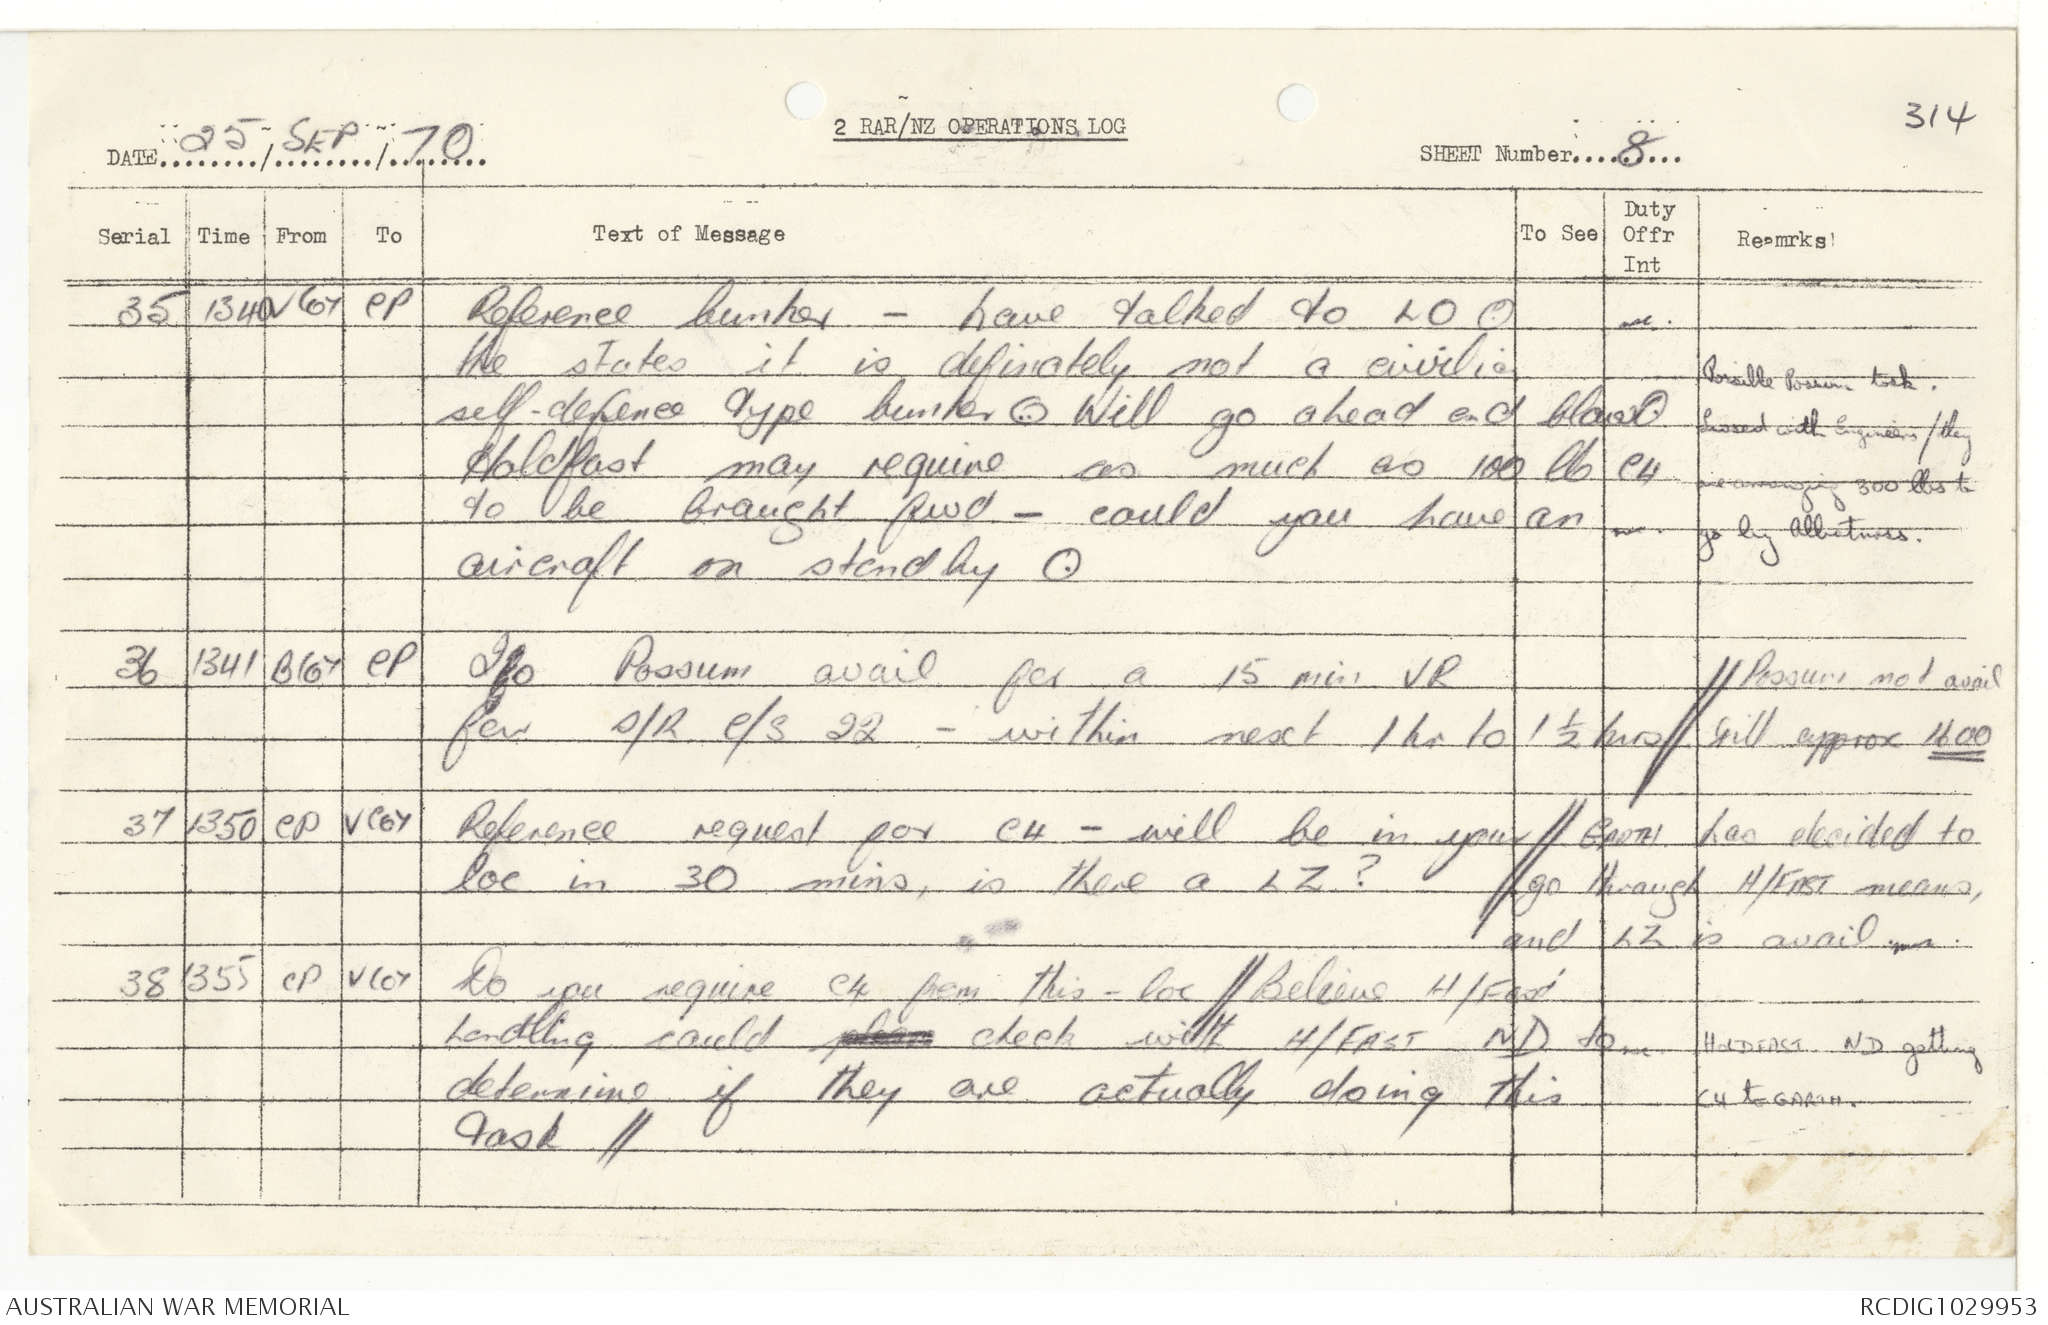 314
2 RAR/NZ OPERATIONS LOG
DATE 25/SEP/70
SHEET Number 8
Serial Time From To Text of Message To See Duty Offr Int Remarks
35 1340 V Coy CP Reference bunker - have talked to LO
the states it is definately not a civilia
Possible Possum task.
self-defence type bunker Will go ahead and blow
Liased with Engineers/they
Holdfast may require as much as 100 lb C4
are arranging 300 lbs to
to be braught fwd - could you have an
go by Albatross.
aircraft on standby
36 1341 B Coy CP Possum avail for a 15 min VR // Possum not avail
for S/R C/S 22 - within next 1 hr to 1 1/2 hrs // till approx 1600
37 1350 CP V Coy Reference request for C4 - will be in your // GARTH has decided to
loc in 30 mins, is there a LZ? // go through H/FAST means,
and LZ is avail
38 1355 CP V Coy Do you require C4 from this - loc // Believe H/Fast
handling could check with H/FAST ND to HOLDFAST ND getting
determine if they are actually doing this C4 to GARTH.
task //
AUSTRALIAN WAR MEMORIAL
RCDIG1029953